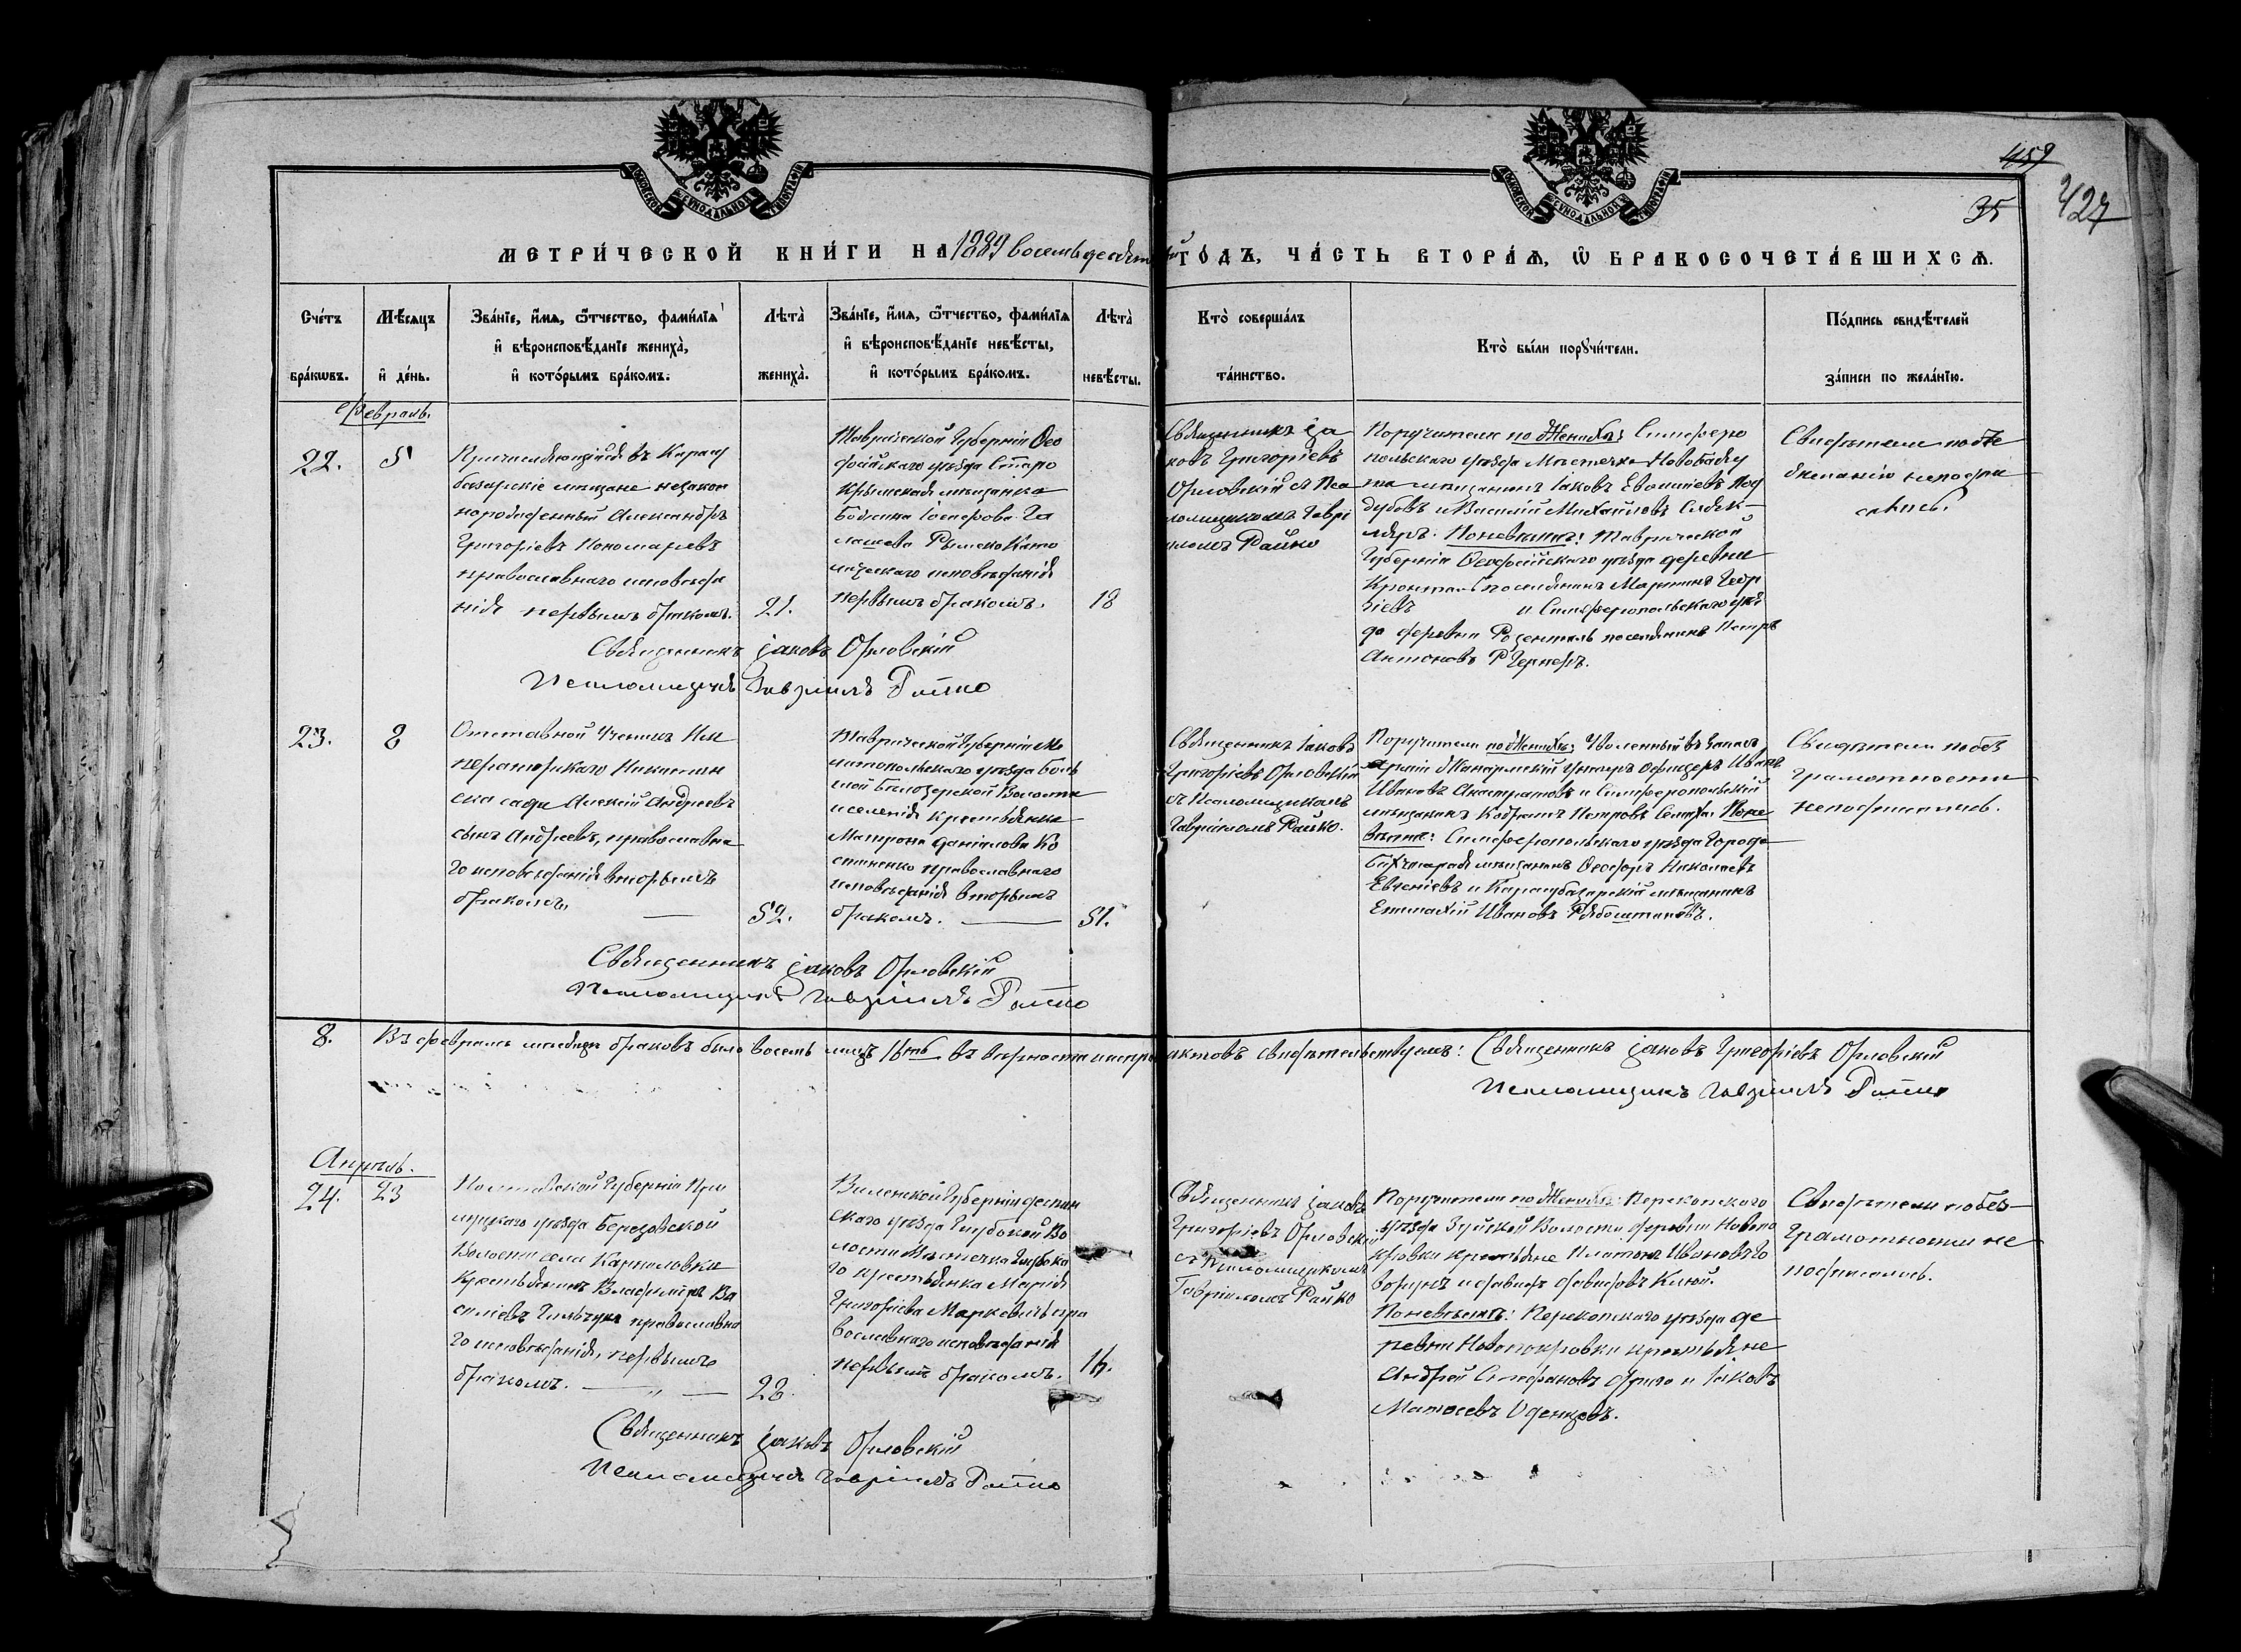 МОСКОВСКОЙ СѴНОДАЛЬНОЙ ТИПОГРАФІИ
МОСКОВСКОЙ СѴНОДАЛЬНОЙ ТИПОГРАФІИ
459
35
427
МЕТРИ́ЧЕСКОЙ КНИ́ГИ НА 1889 восемьдесят
ГО́ДЪ, ЧА́СТЬ ВТОРА́Ѧ, Ѽ БРАКОСОЧЕТА́ВШИХСѦ.
Сче́тъ бра́кѡвъ.
Мѣ́сяцъ и҆ де́нь.
Зва́нїе, и҆́мѧ, ѻ҆́тчество, фами́лїѧ
и҆ вѣроисповѣ́данїе жениха̀,
и҆ кото́рымъ бра́комъ.
Лѣта̀ жениха̀.
Зва́нїе, и҆́мѧ, ѻ҆́тчество, фами́лїѧ
и҆ вѣроисповѣ́данїе невѣ́сты,
и҆ кото́рымъ бра́комъ.
Лѣта̀ невѣ́сты.
Кто̀ соверша́лъ
та́инство.
Кто̀ бы́ли порꙋчи́тели.
По́дпись свидѣ́телей
за́писи по жела́нїю.
Февраль.
22.
5
Причисляющійся въ Карасу
базарскіе мещане незакон
норожденный Александръ
Григорiевъ Пономаревъ
православнаго исповеда
нія первымъ бракомъ.
21.
Таврической Губерніи Ѳео
досійскаго уезда Старо
Крымская мещанка
Іосифова Га
лашева Римско Като
лическаго исповеданія
первымъ бракомъ.
18
Священникъ Іа
ковъ Григоріевъ
Орловскій съ Пса
ломщикомъ Гаврі
иломъ Райко
Поручители по Женихе: Симферо
польскаго уезда Местечка
мещанинъ Іаковъ
и Василій Михайловъ
По невесте: Таврической
Губерніи Ѳеодосійскаго уезда деревни
Кронталь поселянинъ Мартинъ Геор
гіевъ и Симферопольскаго уез
да деревни Розенталь поселянинъ Петръ
Антоновъ
Свидетели по
желанію неподпи
сались.
Священникъ Іаковъ Орловскій
Псаломщикъ Гавріилъ Райко
23.
8
Отставной Ученикъ Им
ператорскаго Никитин
ска сада Алексій Андреевъ
сынъ Андреевъ, православна
го исповеданія вторымъ
бракомъ.
52.
Таврической Губерніи Ме
литопольскаго уезда Боль
шой Белозерской Волости
и селенія Крестьянка
Матрона Даніилова Ко
стиненко православнаго
исповеданія вторымъ
бракомъ.
51.
Священникъ Іаковъ
Григоріевъ Орловскій
съ Псаломщикомъ
Гавріиломъ Райко.
Поручители по Женихе: Уволенный въ запасъ
арміи Жандармскій Унтеръ Офицеръ Иванъ
Ивановъ и Симферопольскій
мещанинъ Петровъ По не
весте: Симферопольскаго уезда Города
Бахчисарая мещанинъ Ѳеодоръ Николаевъ
Евгеніевъ и Карасубазарскій мещанинъ
Ивановъ
Свидетели по без
грамотности
неподписались.
Священникъ Іаковъ Орловскій
Псаломщикъ Гавріилъ Райко
8. Въ феврале месяце браковъ было восемь лицъ 16ть въ верности актовъ свидетельствуемъ: Священникъ Іаковъ Григоріевъ Орловскій
Псаломщикъ Гавріилъ Райко
Апрель.
24.
23
Полтавской Губерніи При
луцкаго уезда Березовской
Волости села Карпиловки
Крестьянинъ Владиміръ Ва
силіевъ православна
го исповеданія, первымъ
бракомъ.
28.
Виленской Губерніи Десни
скаго уезда Глубокой Во
лости Местечка Глубока
го крестьянка Марія
Григоріева Маркевичъ пра
вославнаго исповеданія
первымъ бракомъ.
16.
Священникъ Іаковъ
Григоріевъ Орловскій
съ Псаломщикомъ
Гавріиломъ Райко
Поручители по Женихе: Перекопскаго
уезда Волости деревни Новопо
кровки крестьяне Платонъ Ивановъ Го
ворунъ и Давидъ Давидовъ
По невесте: Перекопскаго уезда де
ревни Новопокровки крестьяне
Андрей Стефановъ и Іаковъ
Матвеевъ
Свидетели по без
грамотности не
подписались.
Священникъ Іаковъ Орловскій
Псаломщикъ Гавріилъ Райко